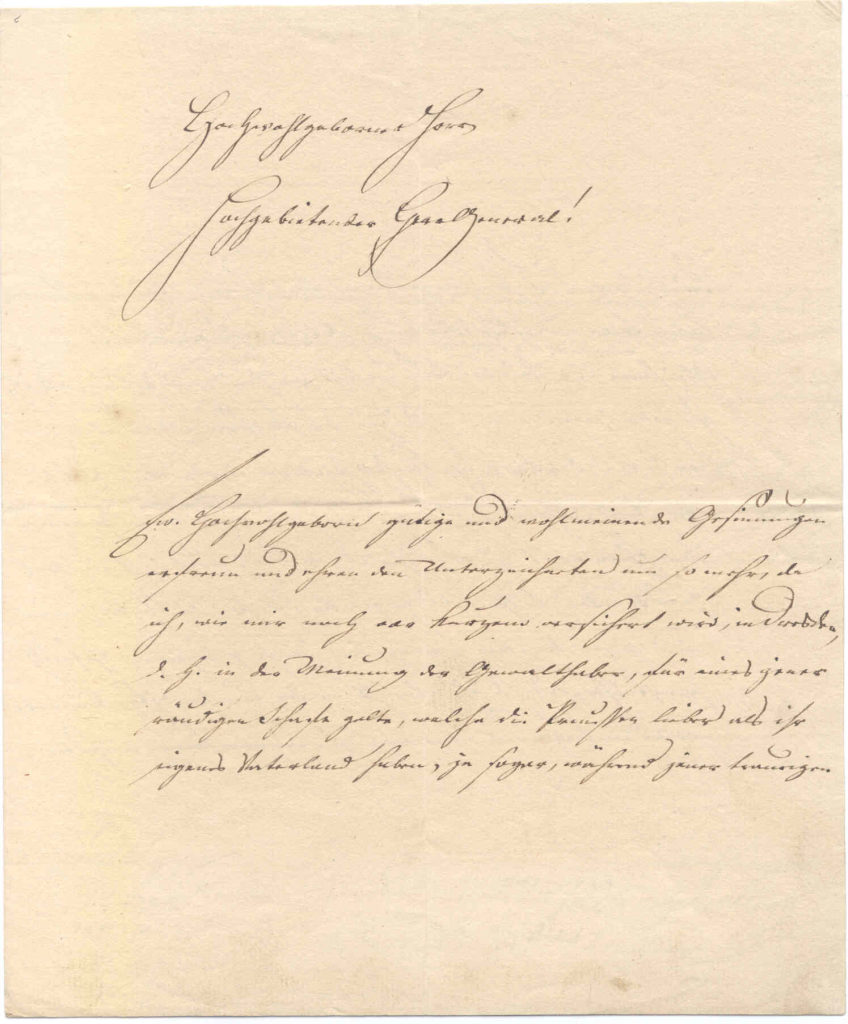 Hochwohlgeborner Herr
Hochgebietender Herr General!
Ew. Hochwohlgeborn gütige und wohlmeinende Gesinnungen
erfreun und ehren den Unterzeichneten um so mehr, da
ich, wie mir noch vor Kurzem versichert wird, in Dresden,
d. h. in der Meinung der Gewalthaber, für eines jener
räudigen Schafe gelte, welche die Preussen lieber als ihr
eigenes Vaterland haben, ja sogar, während jener traurigen